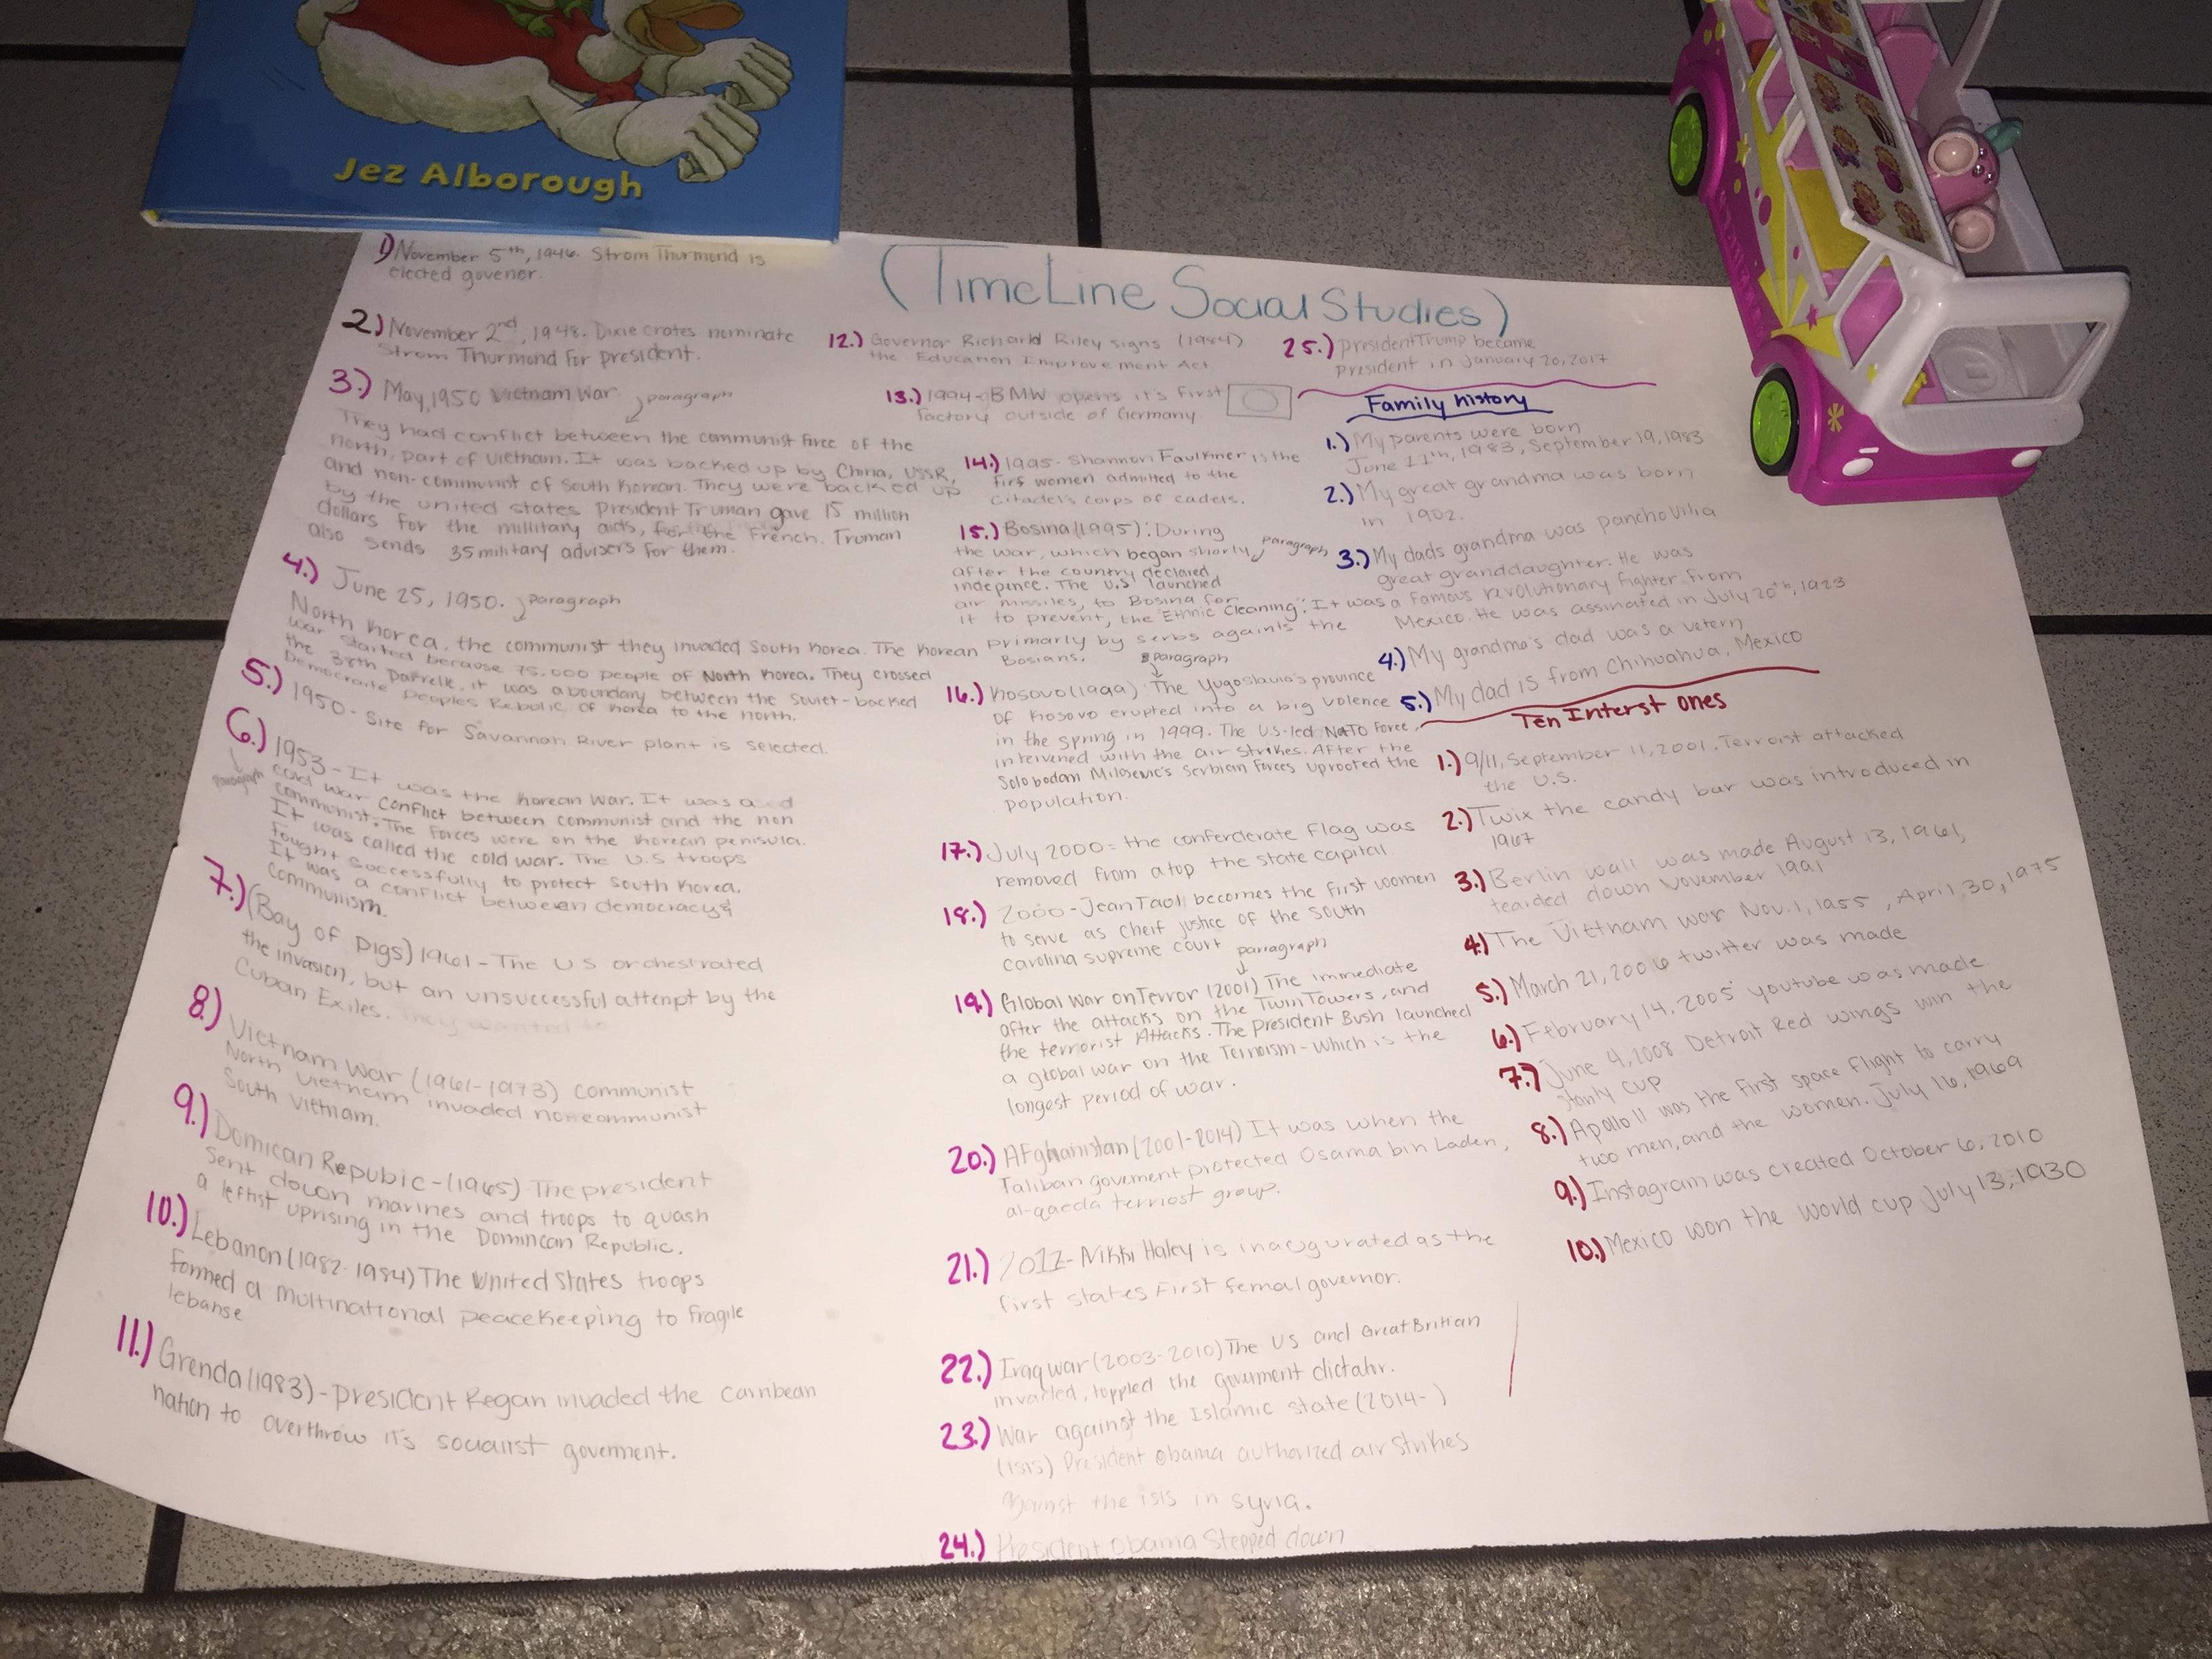 Jez Alborough
(TimeLine Social Studies)
1) November 5th, 1946. Strom Thurmond is
elected govenor.
2.) November 2nd, 1948. Dixiecrates nominate
Strom Thurmond for president.
3.) May, 1950 Vietnam War
paragraph
They had conflict between the communist force of the
north, part of Vietnam. It was backed up by China, USSR,
and non-communit of South Korean. They were backed up
by the united states President Truman gave 15 million
dollars for the millitary aids, for the French. Truman
also sends 35 military advisers for them.
4.) June 25, 1950.
paragraph
North Korea, the communist they invaded South Korea. The Korean
war started because 75,000 people of North Korea. They crossed
the 38th parrelle, it was a boundary between the Soviet-backed
Democratic peoples Rebulic of Korea to the north.
5.) 1950- Site for Savannah River plant is selected.
6.) 1953- It was the Korean War. It was a
paragraph
cold war conflict between communist and the non
communist. The forces were on the Korean penisula.
It was called the cold war. The U.S troops
fought successfully to protect South Korea.
It was a conflict between democracy &
communism.
7.) (Bay of pigs) 1961- The US orchestrated
the invasion, but an unsuccessful attenpt by the
Cuban Exiles. They wanted to
8.) Vietnam War (1961-1973) Communist
North Vietnam invaded noncommunist
South Vietnam.
9.) Domican Repubic-(1965) The president
sent down marines and troops to quash
a leftist uprising in the Dominican Republic.
10.) Lebanon (1982-1984) The United States troops
formed a multinational peacekeeping to fragile
lebanse
11.) Grenda (1983)- president Regan invaded the Carribean
nation to overthrow it's socialist goverment.
12.) Governor Richard Riley signs (1984)
the Education Improvement Act
13.) 1994- BMW opens it's first
factory outside of Germany.
14.) 1995- Shannon Faulkner is the
firs women admitted to the
Citadel's corps of cadets.
15.) Bosina (1995): During
the war, which began shorly
paragraph
after the country declared
indepince. The U.S launched
air missiles, to Bosina for
it to prevent, the "Ethnic Cleaning". It was
primarly by serbs againts the
Bosians.
paragraph
16.) Kosovo (1999) The Yugoslavia's province
of Kosovo erupted into a big volence
in the spring in 1999. The U.S-led NATO Force,
intervened with the air strikes. After the
Solobodan Milosevic's Serbian forces uprooted the
population.
17.) July 2000= the conferderate flag was
removed from atop the state capital
18.) 2000- Jean Taol becomes the first women
to serve as cheif justice of the South
Carolina supreme court
paragraph
19.) Global War on Terror (2001) The immediate
after the attacks on the Twin Towers, and
the terrorist Attacks. The president Bush launched
a global war on the Terroism- Which is the
longest period of war.
20.) Afghanistan (2001-2014) It was when the
Taliban goverment protected Osama bin Laden,
al-qaeda terriost group.
21.) 2011- Nikki Haley is inaugurated as the
first states First femal governor.
22.) Iraq war (2003-2010) The US and Great Britian
invaded, toppled the goverment dictahr.
23.) War against the Islamic state (2014- )
(isis) President Obama authorized air strikes
against the isis in syria.
24.) President Obama Stepped down
25.) president Trump became
President in January 20, 2017
Family history
1.) My parents were born
June 11th, 1983, September 19, 1983
2.) My great grandma was born
in 1902.
3.) My dads grandma was pancho villia
great granddaughter. He was
a famous revolutionary fighter from
Mexico. He was assinated in July 20th, 1923
4.) My grandma's dad was a vetern
5.) My dad is from Chihuahua, Mexico
Ten Interst ones
1.) 9/11, September 11, 2001. Terroist attacked
the U.S.
2.) Twix the candy bar was introduced in
1967
3.) Berlin wall was made August 13, 1961,
tearded down November 1991
4.) The Vietnam war Nov. 1, 1955, April, 30, 1975
5.) March 21, 2006 twitter was made
6.) February 14, 2005 youtube was made
7.) June 4, 2008 Detroit Red wings win the
Stanly cup
8.) Apollo 11 was the first space flight to carry
two men, and the women. July 16, 1969
9.) Instagram was created October 6, 2010
10.) Mexico won the world cup July 13, 1930